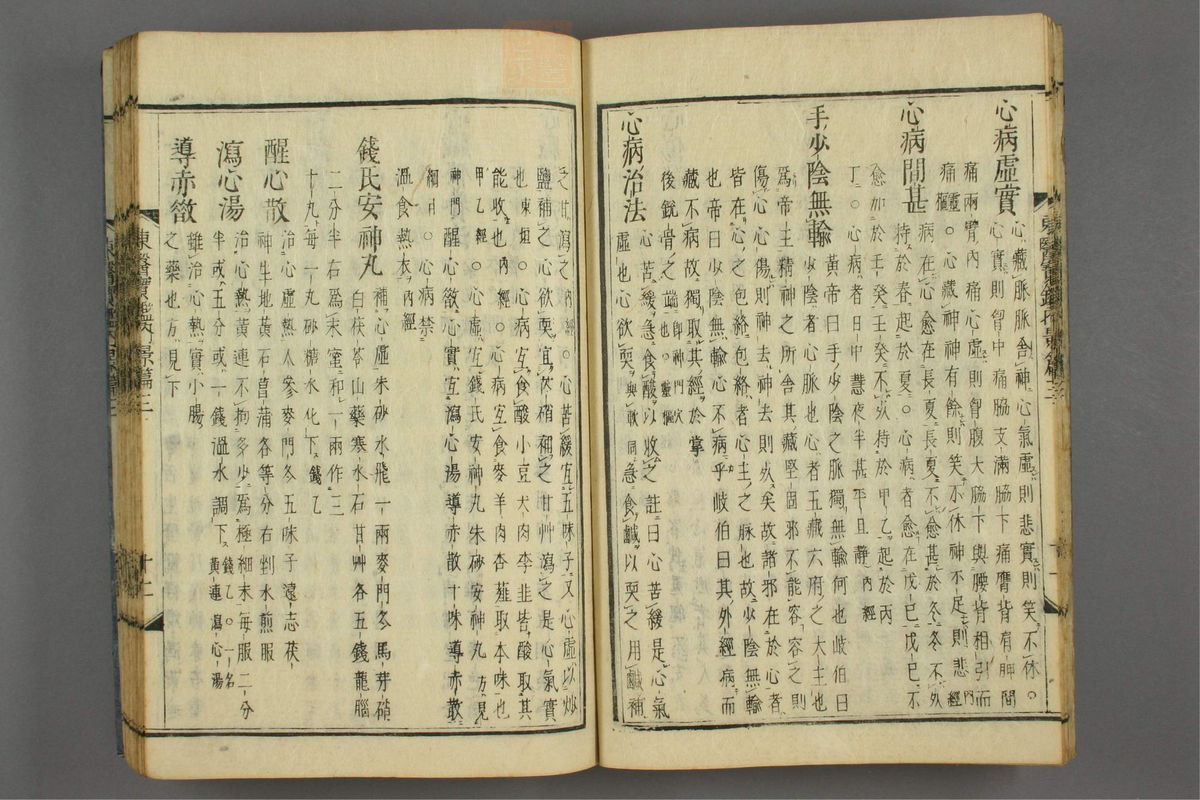 心病虛實
心藏脈脈舍神心氣虛則悲實則笑不休○
心實則胷中痛脇支滿脇下痛膺背肩胛間
痛兩臂內痛心虛則胷腹大脇下與腰背相引而
痛靈樞○心藏神神有餘則笑不休神不足則悲內經
心病間甚
病在心愈在長夏長夏不愈甚於冬冬不死
持於春起於夏○心病者愈在戊己戊己不
愈加於壬癸壬癸不死持於甲乙起於丙
丁○心病者日中慧夜半甚平旦靜內經
手少陰無輸
黃帝曰手少陰之脈獨無輸何也岐伯曰
少陰者心脈也心者五藏六府之大主也
爲帝王精神之所舍其藏堅固邪不能容容之則
傷心心傷則神去神去則死矣故諸邪在於心者
皆在心之包絡包絡者心主之脈也故少陰無輸
也帝曰少陰無輸心不病乎岐伯曰其外經病而
藏不病故獨取其經於掌
後銳骨之端也靈樞即神門穴
心病治法
心苦緩急食酸以收之註曰心苦緩是心氣
虛也○心欲耎耎與軟同急食鹹以耎之用鹹補
之甘瀉之內經○心苦緩宜五味子又心虛以炒
鹽補之心欲耎宜芒硝補之甘艸瀉之是心氣實
也東垣○心病宜食酸小豆犬肉李韭皆酸取其
能收也內經○心病宜食麥羊肉杏薤取本味也
甲乙經○心虛宜錢氏安神丸朱砂安神丸方見
神門醒心散心實宜瀉心湯導赤散十味導赤散
錢氏安神丸
補心虛朱砂水飛一兩麥門冬馬芽硝
白茯苓山藥寒水石甘艸各五錢龍腦
二分半右爲末蜜和一兩作三
十丸每一丸砂糖水化下錢乙
醒心散
治心虛熱人參麥門冬五味子遠志茯
神生地黃石菖蒲各等分右剉水煎服
瀉心湯
治心熱黃連不拘多少爲極細末每服二分
半或五分或一錢溫水調下錢乙○一名黃連瀉心湯
導赤散
治心熱實小腸
之藥也方見下
東醫寶鑑內景篇三
十二